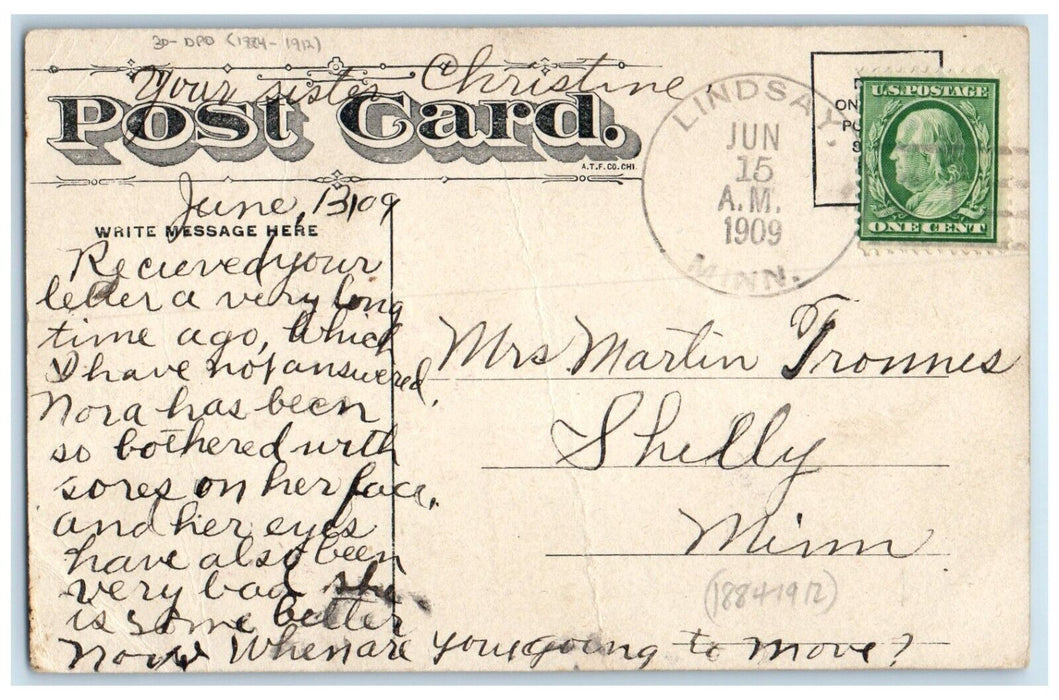 3D- DPO (1884-1912)
Your sister Christine,
Post Card.
A.T.F.CO.CHI.
LINDSAY.
JUN
15
A.M.
1909
MINN.
ON
PO
S
U.S. POSTAGE
ONE CENT
June, 13, 09
WRITE MESSAGE HERE
Recieved your
letter a very long
time ago, which
I have not answered,
Nora has been
so bothered with
sores on her face,
and her eyes
have also been
very bad she
is some better
now When are you going to move?
Mrs Martin Tronnes
Shelly
Minn
(1884-1912)